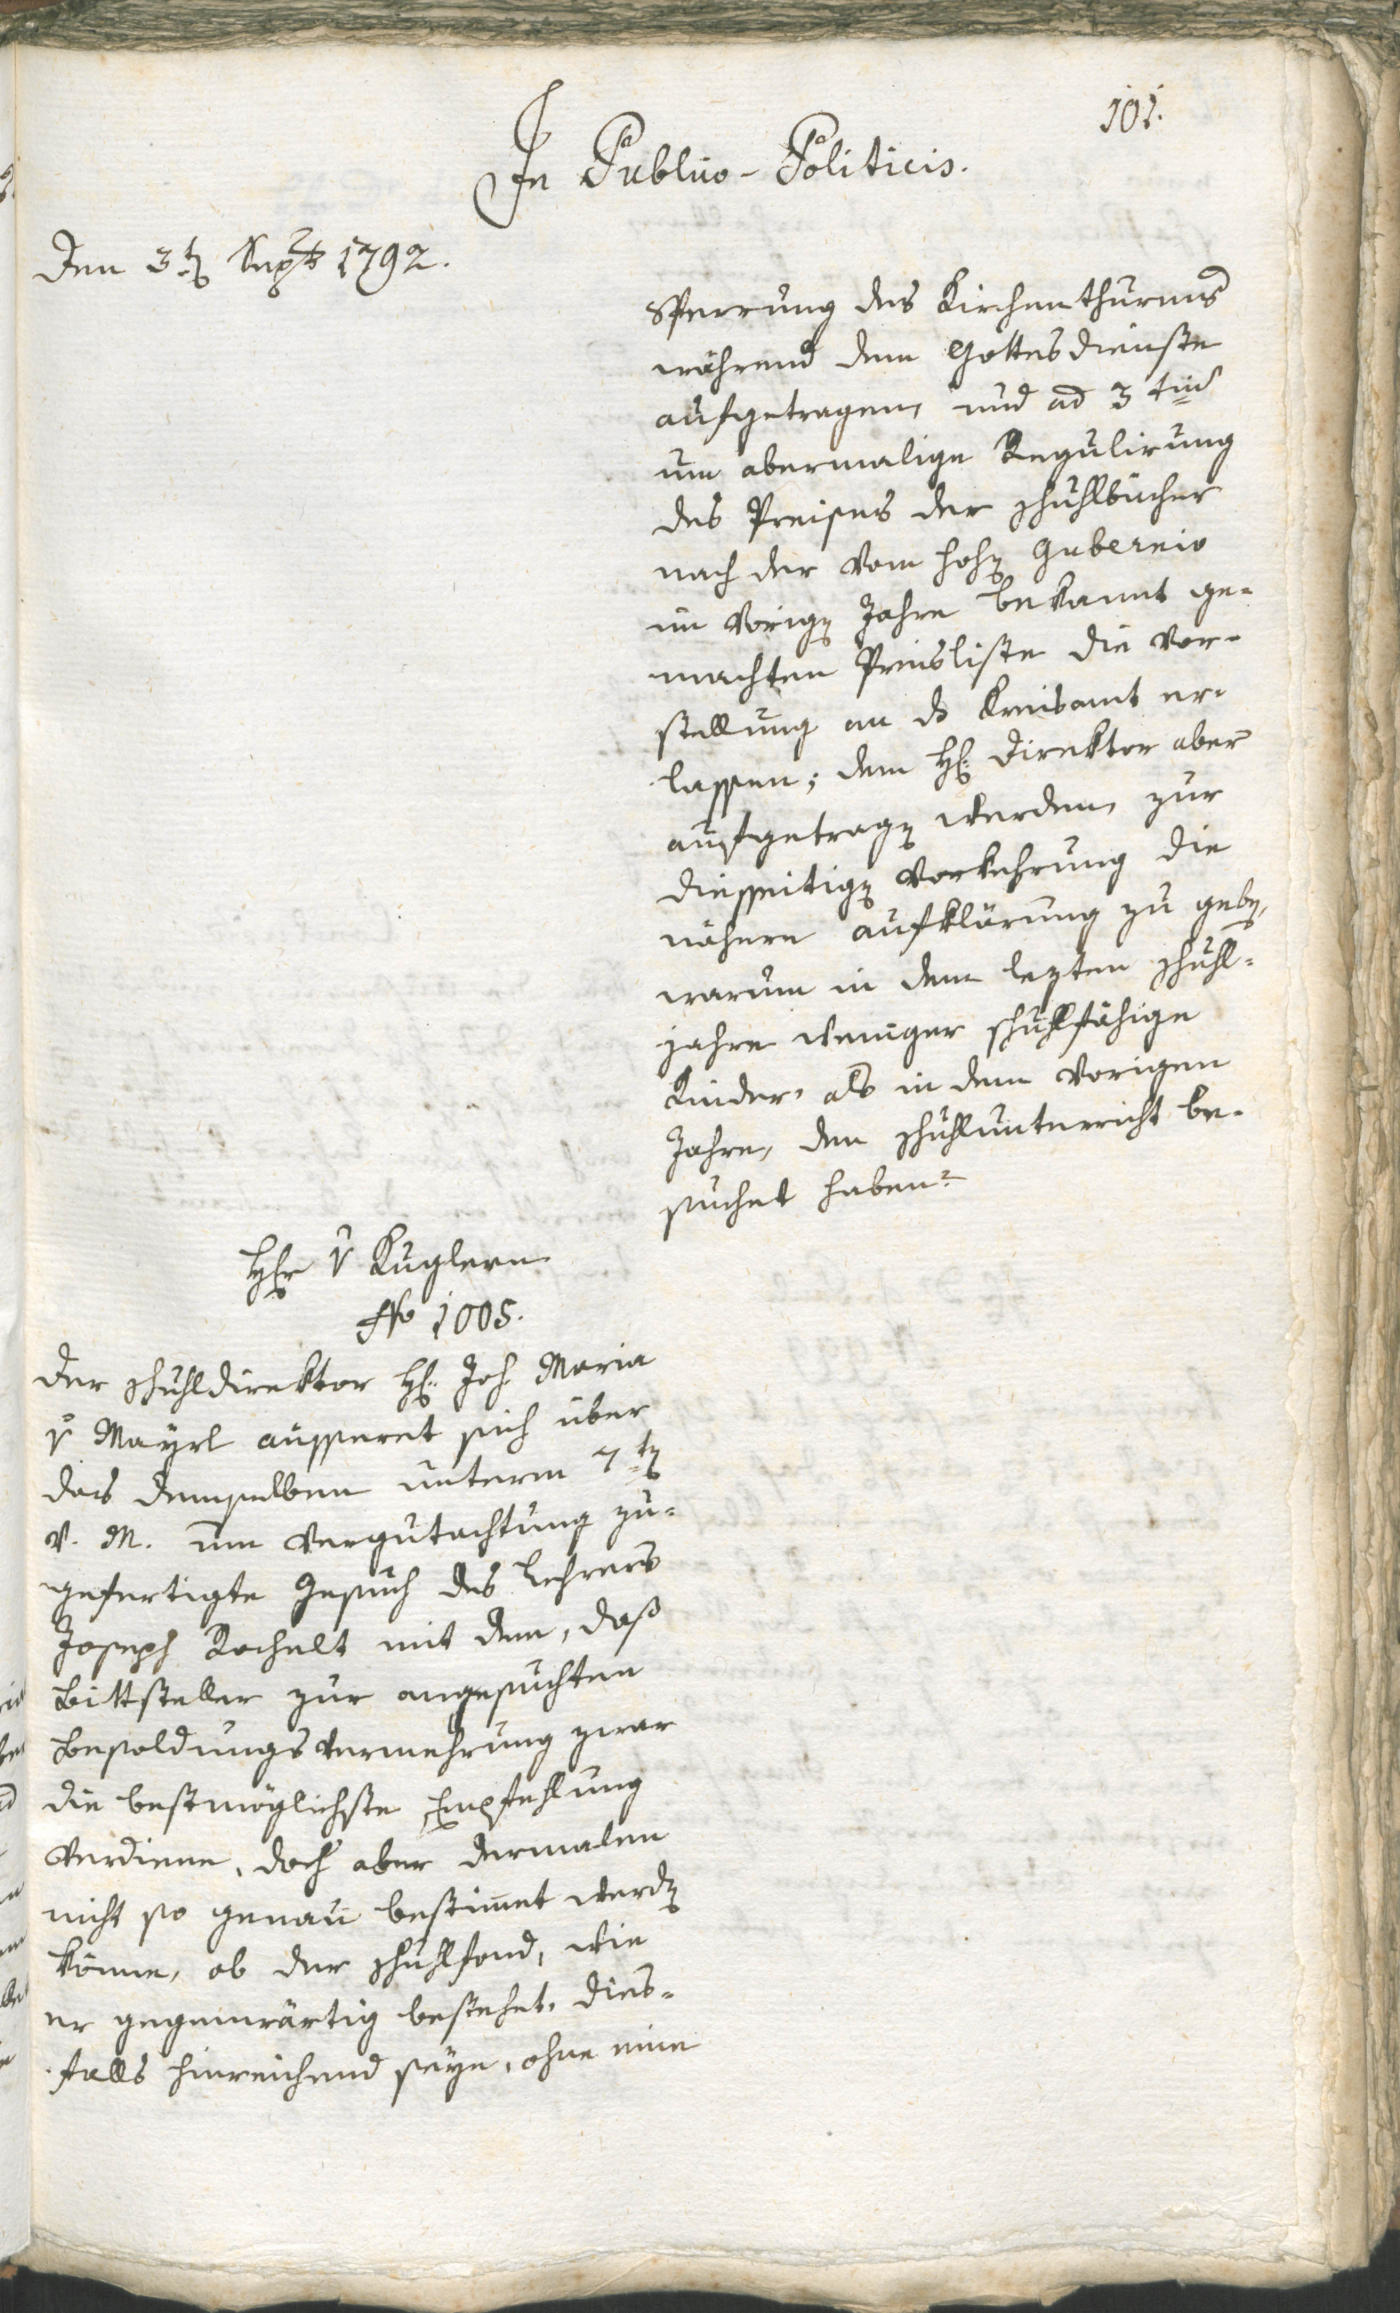 101.
In Publico-Politicis.
Den 3t[en] Sept 1792.
Sperrung des Kirchenthurms
während dem Gottesdienste
aufgetragen, und ad 3tium
um abermalige Regulirung
des Preises der Schuhlbücher
nach der vom hohen Gubernio
im vorigen Jahre bekannt ge-
machten Preisliste die Vor-
stellung an das Kreisamt er-
lassen; dem H: Direktor aber
aufgetragen werden, zur
diesseitigen Vorkehrung die
nähere Aufklärung zu geben,
warum in dem lezten Schuhl-
jahre weniger schuhlfähige
Kinder, als in dem vorigen
Jahre, den Schuhlunterricht be-
suchet haben?
Hr v Kuglern
No 1005.
Der Schuhldirektor H: Joh Maria
v Mayrl äusseret sich über
das demselben unterm 7ten
v. M. um Vergutachtung zu-
gefertigte Gesuch des Lehrers
Joseph Rochelt mit dem, daß
Bittsteller zur angesuchten
Besoldungsvermehrung zwar
die bestmöglichste Empfehlung
verdiene, doch aber dermalen
nicht so genau bestimmet werden
könne, ob der Schuhlfond, wie
er gegenwärtig bestehet, dies-
falls hinreichend seye, ohne eine